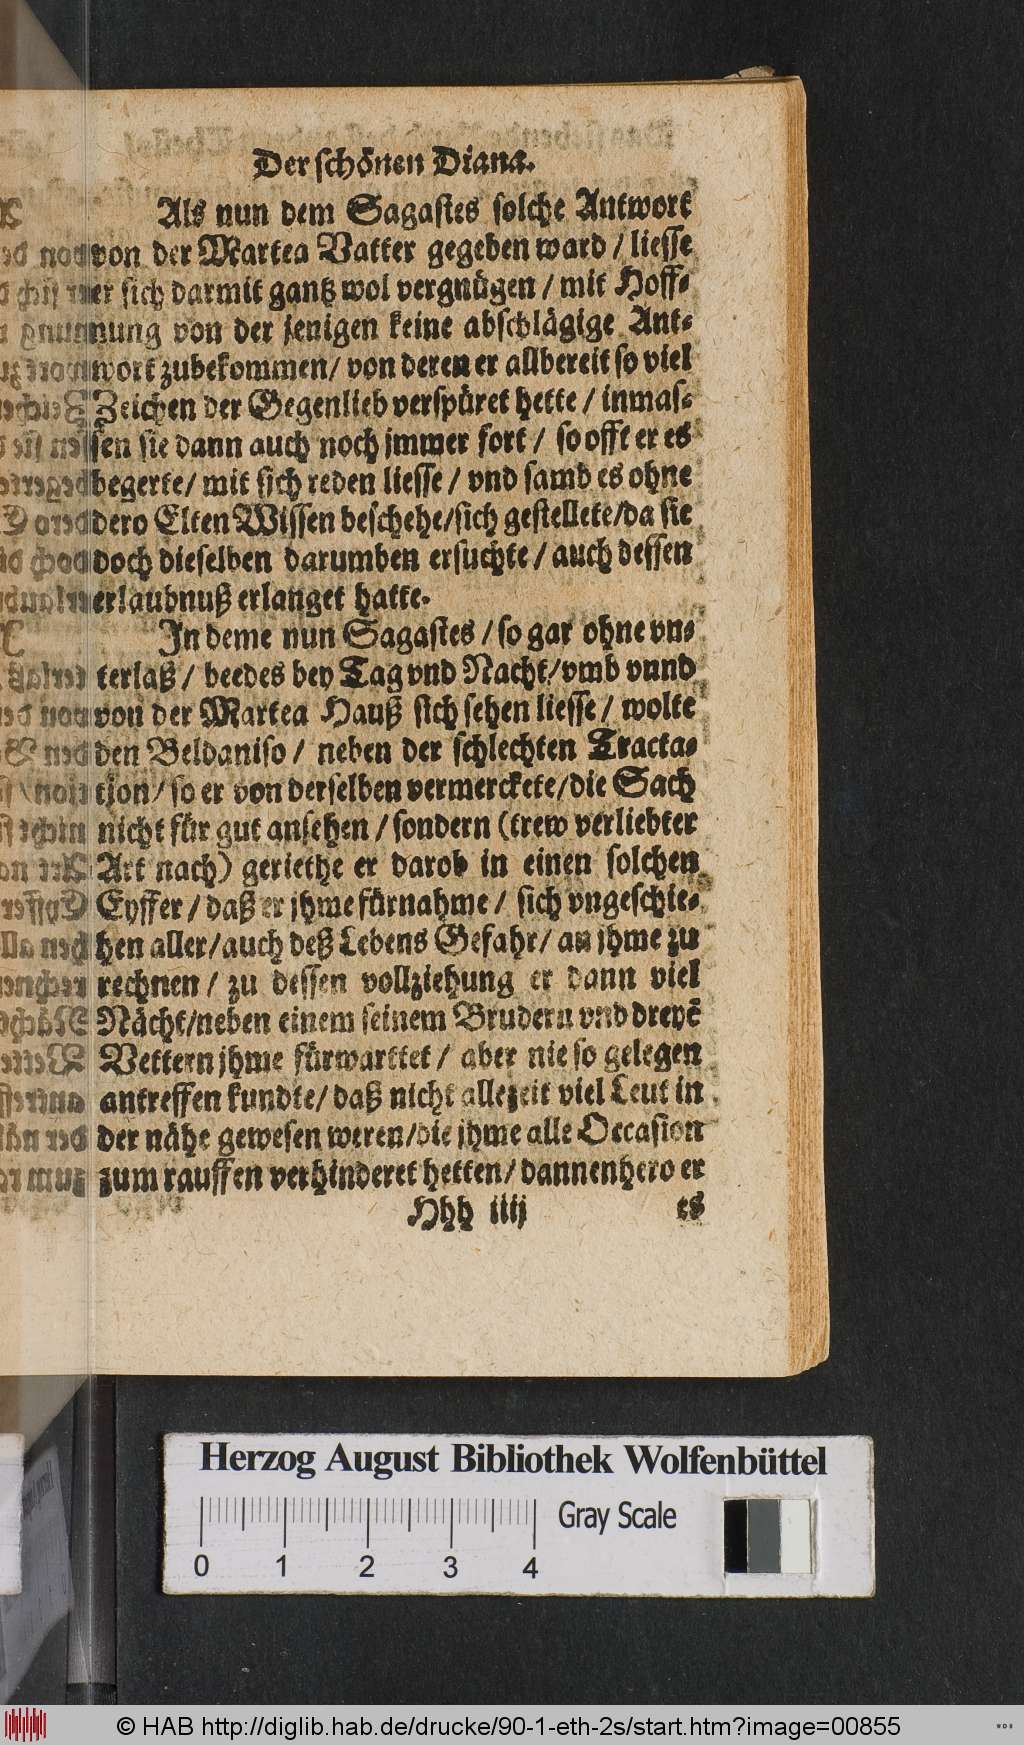 Der schönen Diana.
Als nun dem Sagastes solche Antwort
von der Martea Vatter gegeben ward / liesse
er sich darmit gantz wol vergnügen / mit Hoff-
nung von der jenigen keine abschlägige Ant-
wort zubekommen / von deren er allbereit so viel
Zeichen der Gegenlieb verspüret hette / inmas-
sen sie dann auch noch jmmer fort / so offt er es
begerte / mit sich reden liesse / vnd samb es ohne
dero Elten Wissen beschehe / sich gestellete / da sie
doch dieselben darumben ersuchte / auch dessen
erlaubnuß erlanget hatte.
In deme nun Sagastes / so gar ohne vn-
terlaß / beedes bey Tag vnd Nacht / vmb vnnd
von der Martea Hauß sich sehen liesse / wolte
den Beldaniso / neben der schlechten Tracta-
tion / so er von derselben vermerckete / die Sach
nicht für gut ansehen / sondern (trew verliebter
Art nach) geriethe er darob in einen solchen
Eyffer / daß er jhme fürnahme / sich vngeschie-
hen aller / auch deß Lebens Gefahr / an jhme zu
rechnen / zu dessen vollziehung er dann viel
Nächt / neben einem seinem Brudern vnd dreyē
Vettern jhme fürwarttet / aber nie so gelegen
antreffen kundte / daß nicht allezeit viel Leut in
der nähe gewesen weren / die jhme alle Occasion
zum rauffen verhinderet hetten / dannenhero er
Hhh iiij es
Herzog August Bibliothek Wolfenbüttel
Gray Scale
0 1 2 3 4
© HAB http://diglib.hab.de/drucke/90-1-eth-2s/start.htm?image=00855